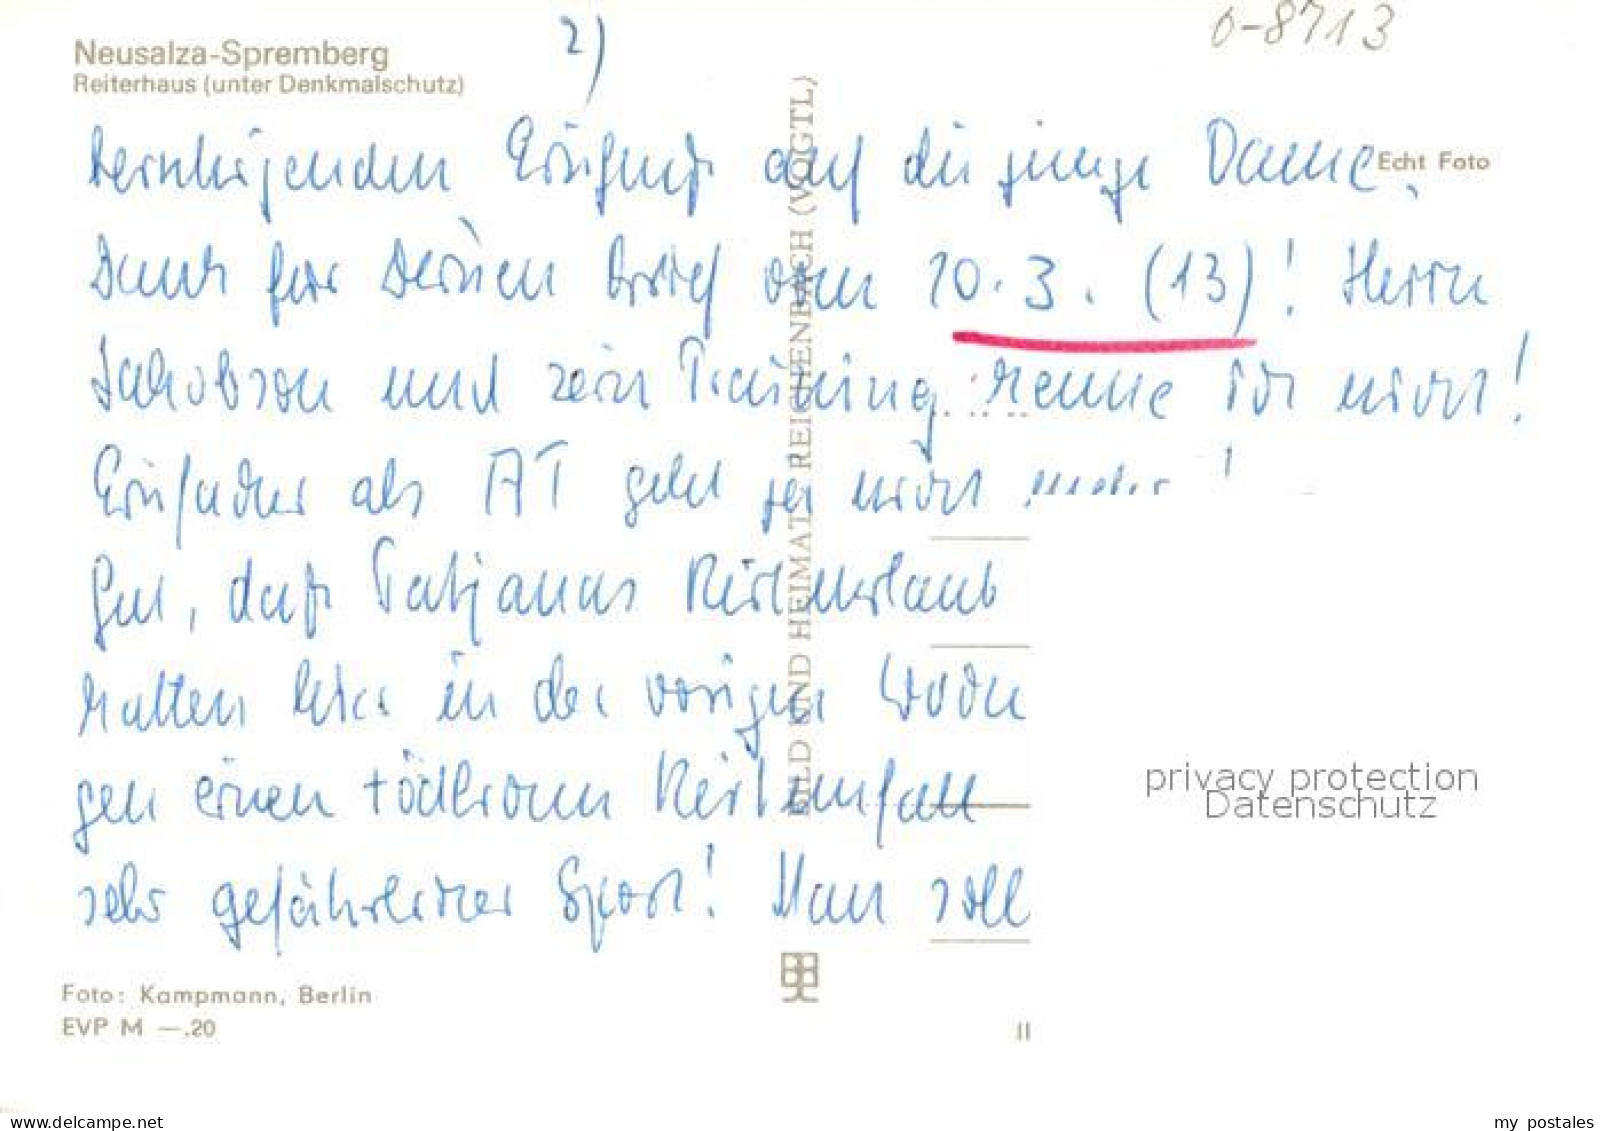 Neusalza-Spremberg
Reiterhaus (unter Denkmalschutz)
2)
0-8713
Echt Foto
beruhigenden Einfluß auf die junge Dame.
Dank für Deinen Brief vom 10.3. (13)! Herrn
Jakobson und sein Training kenne ich nicht!
als AT geht sie nicht mehr!
Gut, daß Tatjanas Reiturlaub
hatten hier in der vorigen Wochen
gen einen tödlichen Reitunfall
sehr gefährlicher Sport! Man soll
BILD UND HEIMAT REICHENBACH (VOGTL)
privacy protection
Datenschutz
Foto: Kampmann, Berlin
EVP M —.20
II
www.delcampe.net
my postales